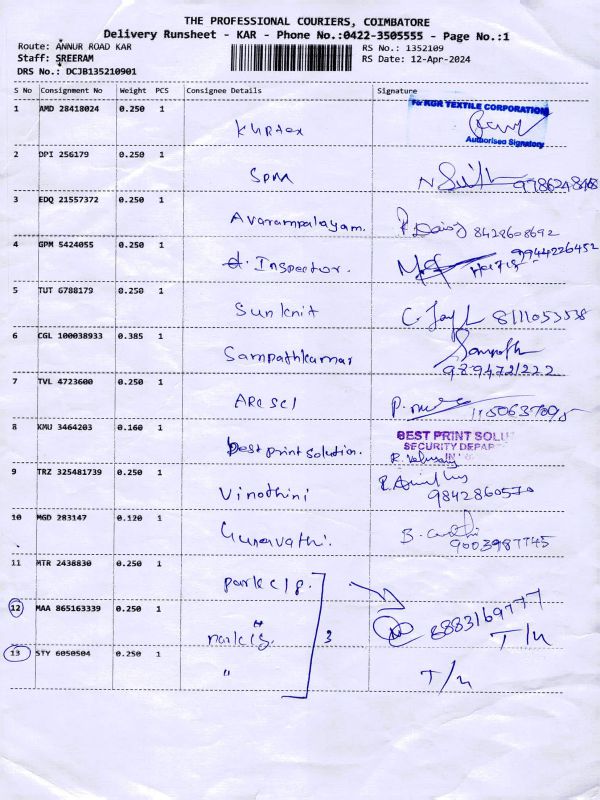 THE PROFESSIONAL COURIERS, COIMBATORE
Delivery Runsheet - KAR - Phone No.:0422-3505555 - Page No.:1
Route: ANNUR ROAD KAR RS No.: 1352109
Staff: SREERAM RS Date: 12-Apr-2024
DRS No.: DCJB135210901
S No Consignment No Weight PCS Consignee Details Signature
1 AMD 28418024 0.250 1
For KGR TEXTILE CORPORATION
Authorised Signatory
2 DPI 256179 0.250 1
SPM
3 EDQ 21557372 0.250 1
Avarampalayam. 8428608692
4 GPM 5424055 0.250 1
Inspector. 9944226452
5 TUT 6788179 0.250 1
Sunknit 8111053538
6 CGL 100038933 0.385 1
Sampathkumar 9894721222
7 TVL 4723600 0.250 1
8 KMU 3464203 0.160 1
Best print solution. BEST PRINT SOLU
SECURITY DEPAR
9 TRZ 325481739 0.250 1
Vinothini 9842860570
10 MGD 283147 0.120 1
Gunavathi. 9003987745
11 MTR 2438830 0.250 1
park clg.
12 MAA 865163339 0.250 1
park clg. 3 8883169777
T/N
13 STY 6050504 0.250 1
" T/N